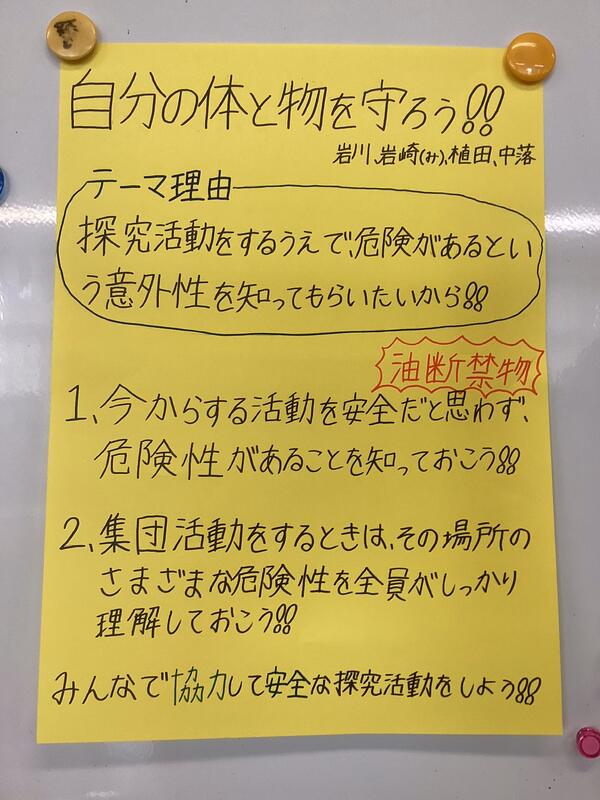 自分の体と物を守ろう!!
岩川、岩崎(み)、植田、中落
テーマ理由
探究活動をするうえで、危険があるとい
う意外性を知ってもらいたいから!!
油断禁物
1、今からする活動を安全だと思わず、
危険性があることを知っておこう!!
2、集団活動をするときは、その場所の
さまざまな危険性を全員がしっかり
理解しておこう!!
みんなで協力して安全な探究活動をしよう!!